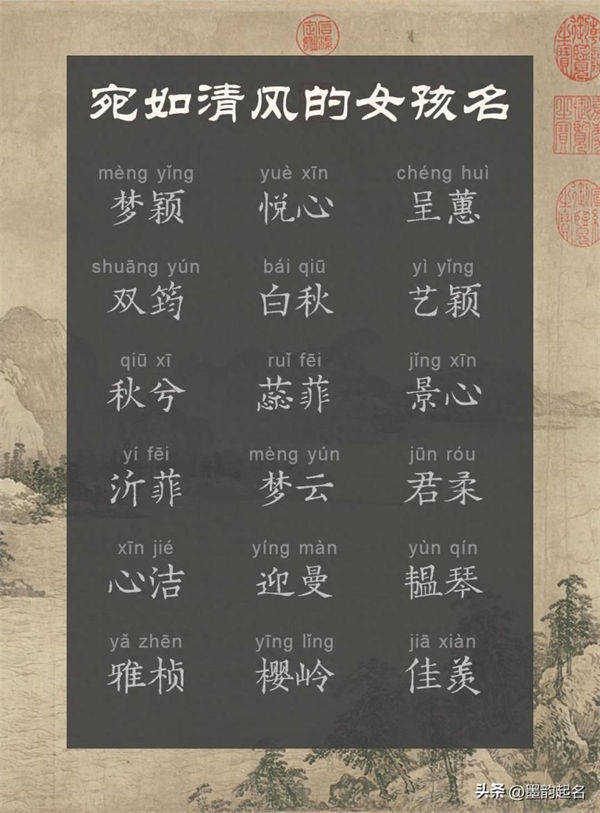 宛如清风的女孩名
mèng yǐng yuè xīn chéng huì
梦颖 悦心 呈蕙
shuāng yún bái qiū yì yǐng
双筠 白秋 艺颖
qiū xī ruǐ fēi jǐng xīn
秋兮 蕊菲 景心
yí fēi mèng yún jūn róu
沂菲 梦云 君柔
xīn jié yíng màn yùn qín
心洁 迎曼 韫琴
yǎ zhēn yīng lǐng jiā xiàn
雅桢 樱岭 佳羡
头条 @墨韵起名